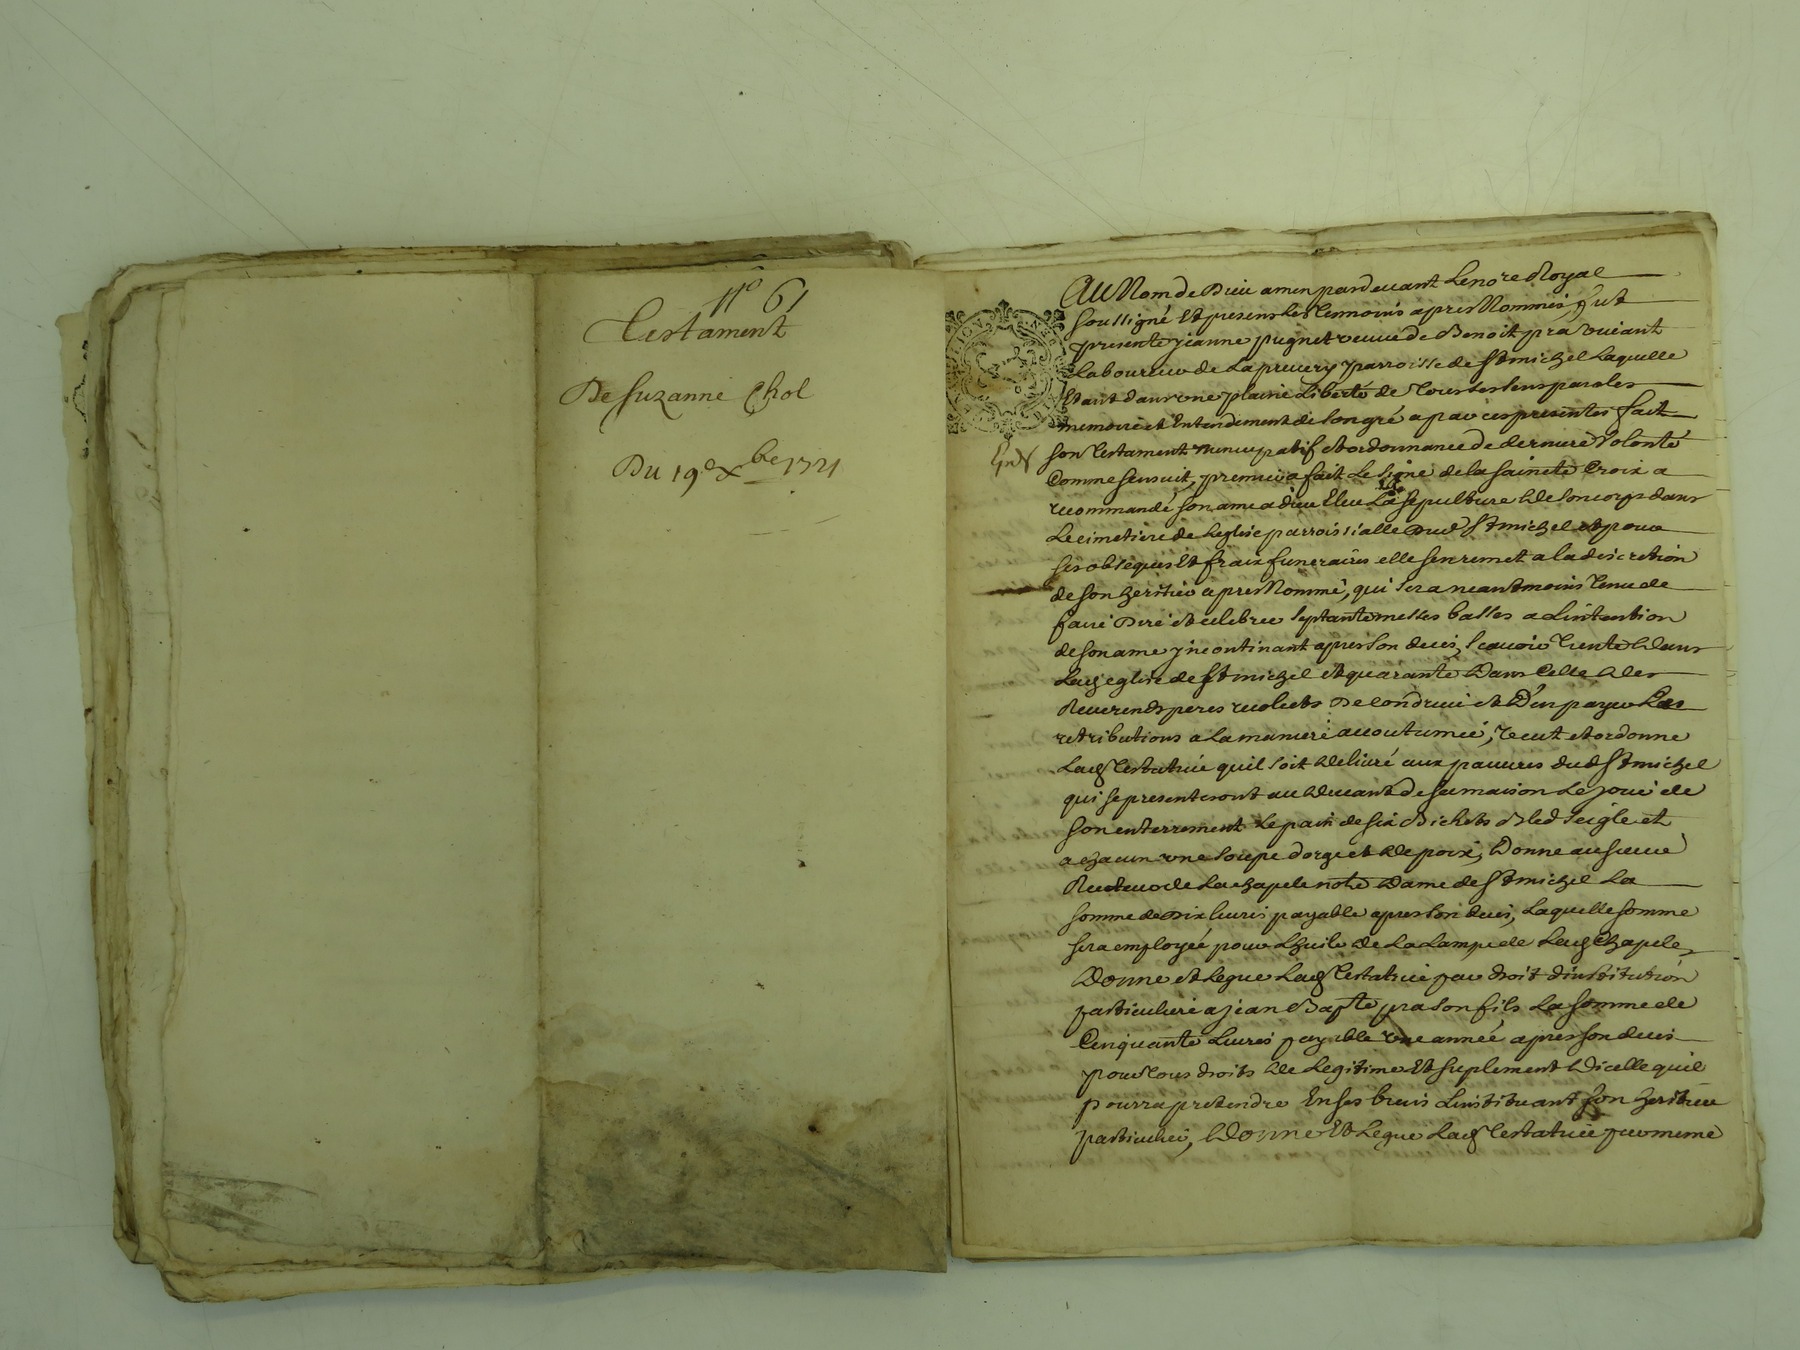 N° 61
Testament
De Suzanne Chol
Du 19e Xbre 1721
Au Nom de Dieu amen pardevant Le no.re Royal
soussigné Et presens Les temoins apres Nommés, fut
presente jeanne pugnet veuve de Benoit pra vivant
Laboureur de parroisse de St michel Laquelle
Etant dans une plaine Liberté de tous ses sens paroles
memoire et Entendement de son gré a par ces presentes fait
son testament nuncupatif et ordonnance de derniere volonté
Comme sensuit, premier a fait Le signe de la sainte Croix a
recommandé son ame a dieu Eleu La sepulture de son corps dans
Le cimetiere de Leglise parroissialle Dud St michel et pour
ses obseques Et fraix funeraires elle sen remet a la discretion
de son heritier apres Nommé, qui sera neantmoins tenu de
faire Dire et celebrer septante messes basses a Lintention
de son ame yncontinant apres son deces, scavoir trente Dans
Lad eglise de St michel et quarante Dans Celle Des
Reverends peres recolets De condrieu et D'en payer Les
retributions a La maniere accoutumée, veut et ordonne
Lad testatrice quil soit delivré aux pauvres dud St michel
qui se presenteront au Devant De sa maison Le jour de
son enterrement Le pain de six Bichets Bled seigle et
a chacun une soupe dorge et de poix, Donne au sieur
Recteur de La chapele notre Dame de St michel La
somme de Dix livres payable apres son deces, Laquelle somme
sera employée pour Lhuile de La Lampe de Lad Chapele,
Donne et Legue Lad testatrice par droit dinstitution
particuliere a jean Bapte pra son fils La somme de
Cinquante Livres payable une année apres son deces
pour tous droits de Legitime Et suplement Dicelle quil
pourra pretendre En ses biens Linstituant son heritier
particulier, Donne Et Legue Lad testatrice par meme